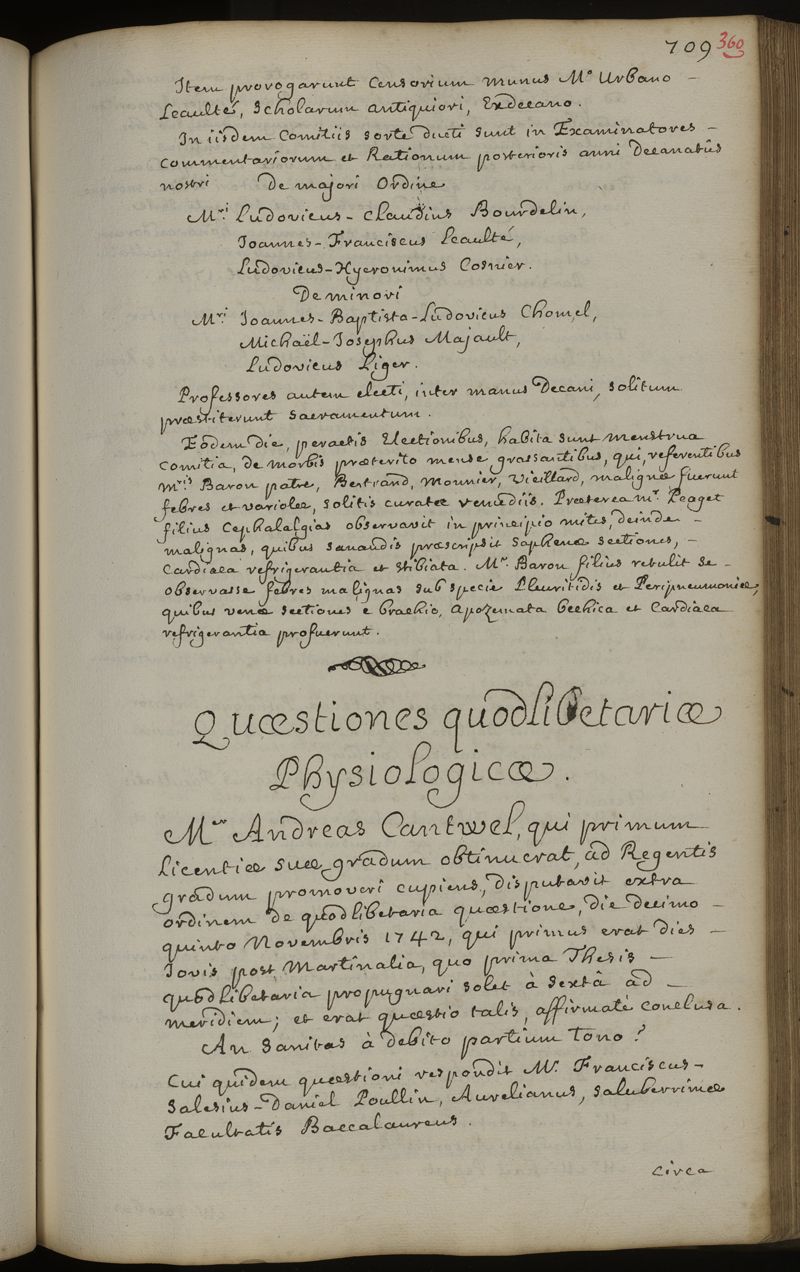 709 360
Item prorogarunt Censorium munus Mo Urbano -
Leaulté, Scholarum antiquiori, Exdecano.
In iisdem Comitiis sorte ducti sunt in Examinatores -
Commentariorum et Rationum posterioris anni Decanatûs
nostri De majori Ordine
M.ri Ludovicus-Claudius Bourdelin,
Joannes-Franciscus Leaulté,
Ludovicus-Hyeronimus Cosnier.
De minori
M.ri Joannes-Baptista-Ludovicus Chomel,
Michaël-Josephus Majault,
Ludovicus Liger.
Professores autem electi, inter manus Decani, solitum
præstiterunt sacramentum.
Eodem die, peractis Electionibus, habita sunt menstrua
Comitia, de morbis præterito mense grassantibus, qui, referentibus
m.ris Baron patre, Bertrand, Mounier, Vieillard, malignæ fuerunt
febres et variolæ, solitis curatæ remediis. Præterea m.r Peaget
filius Cephalalgias observavit in principio mites, deinde -
malignas, quibus sanandis præscripsit saphenæ sectiones, -
Cardiaca refrigerantia et stibiata. M.r Baron filius retulit se -
observasse febres malignas sub specie Pleuritidis et Peripneumoniæ,
quibus venæ sectiones è brachio, apozemata bechica et Cardiaca
refrigerantia profuerunt.
Quæstiones quodlibetariæ
Physiologicæ.
M.r Andreas Cantwel, qui primum
Licentiæ suæ gradum obtinuerat, ad Regentis
gradum promoveri cupiens, disputavit extra
ordinem de quodlibetaria quæstione, die decimo -
quinto Novembris 1742, qui primus erat dies -
Jovis post Martinalia, quo prima Thesis -
quodlibetaria propugnari solet à sextâ ad -
meridiem; et erat quæstio talis, affirmatè conclusa.
An sanitas à debito partium tono?
Cui quidem quæstioni respondit M.r Franciscus-
Salesius-Daniel Poullin, Aurelianus, saluberrimæ
Facultatis Baccalaureus.
circa